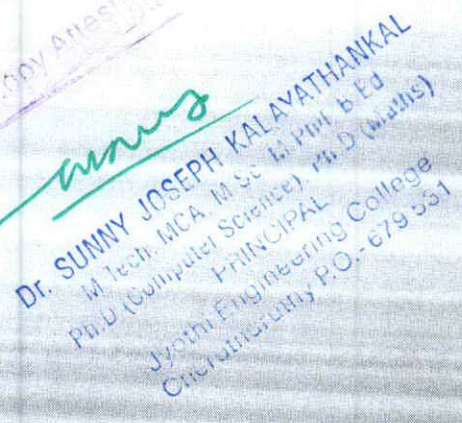 Dr. SUNNY JOSEPH KALAYATHANKAL
M Tech, MCA, M Sc, M.Phil, B.Ed
Ph.D (Computer Science), Ph.D (Maths)
PRINCIPAL
Jyothi Engineering College
Cheruthuruthy P.O.-679 531